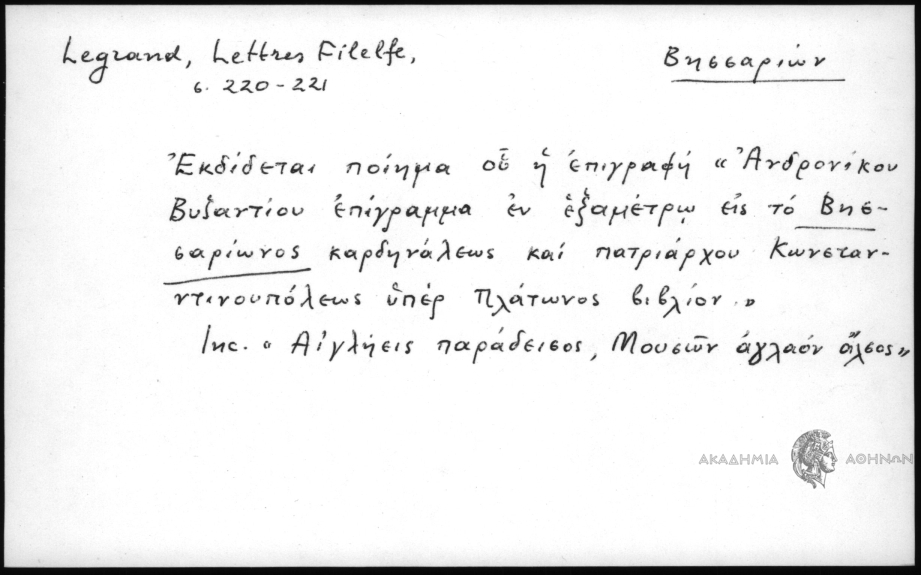 Legrand, Lettres Filelfe,
Βησσαριών
σ. 220-221
Ἐκδίδεται ποίημα οὗ ἡ ἐπιγραφή «Ἀνδρονίκου
Βυζαντίου ἐπίγραμμα ἐν ἑξαμέτρῳ εἰς τό Βησ-
σαρίωνος καρδηνάλεως καί πατριάρχου Κωνσταν-
ντινουπόλεως ὑπέρ Πλάτωνος βιβλίον.»
Inc. « Αἰγλήεις παράδεισος, Μουσῶν ἀγλαόν ἄλσος»
ΑΚΑΔΗΜΙΑ ΑΘΗΝΩΝ